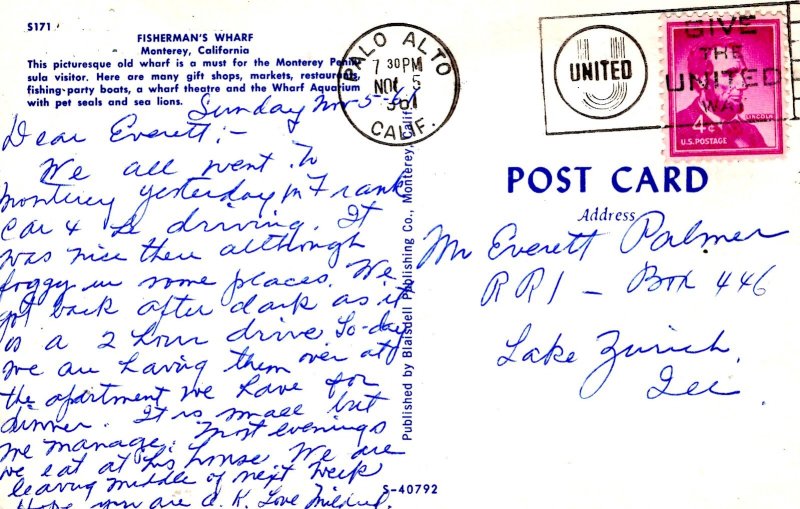 S171
FISHERMAN'S WHARF
Monterey, California
This picturesque old wharf is a must for the Monterey Penin-
sula visitor. Here are many gift shops, markets, restaurants,
fishing-party boats, a wharf theatre and the Wharf Aquarium
with pet seals and sea lions.
Sunday Nov 5-61
Dear Everett:-
We all went to
Monterey yesterday in Frank
car & he driving. It
was nice there although
foggy in some places. We
got back after dark as it
is a 2 hour drive. To-day
we are having them over at
the apartment we have for
dinner. It is small but
we manage. Most evenings
we eat at his house. We are
leaving middle of next week
Hope you are O.K. Love Mildred.
Published by Blaisdell Publishing Co., Monterey, Calif.
S-40792
PALO ALTO
7 30 PM
NOV 5
1961
CALIF.
UNITED
GIVE
THE
UNITED
WAY
LINCOLN
4¢
U.S. POSTAGE
POST CARD
Address
Mr Everett Palmer
RR1 - Box 446
Lake Zurich,
Ill.